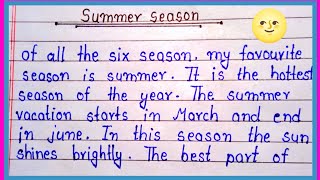 Summer season
of all the six season. my favourite
season is summer. It is the hottest
season of the year. The summer
vacation starts in March and end
in june. In this season the sun
shines brightly. The best part of